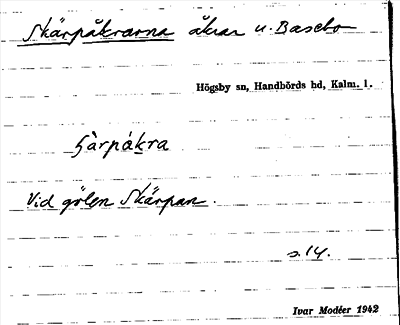 Skärpåkrarna åkrar u. Basebo
Högsby sn, Handbörds hd, Kalm. l.
ʃàrpákra
Vid gölen Skärpan.
s. 14.
Ivar Modéer 1942